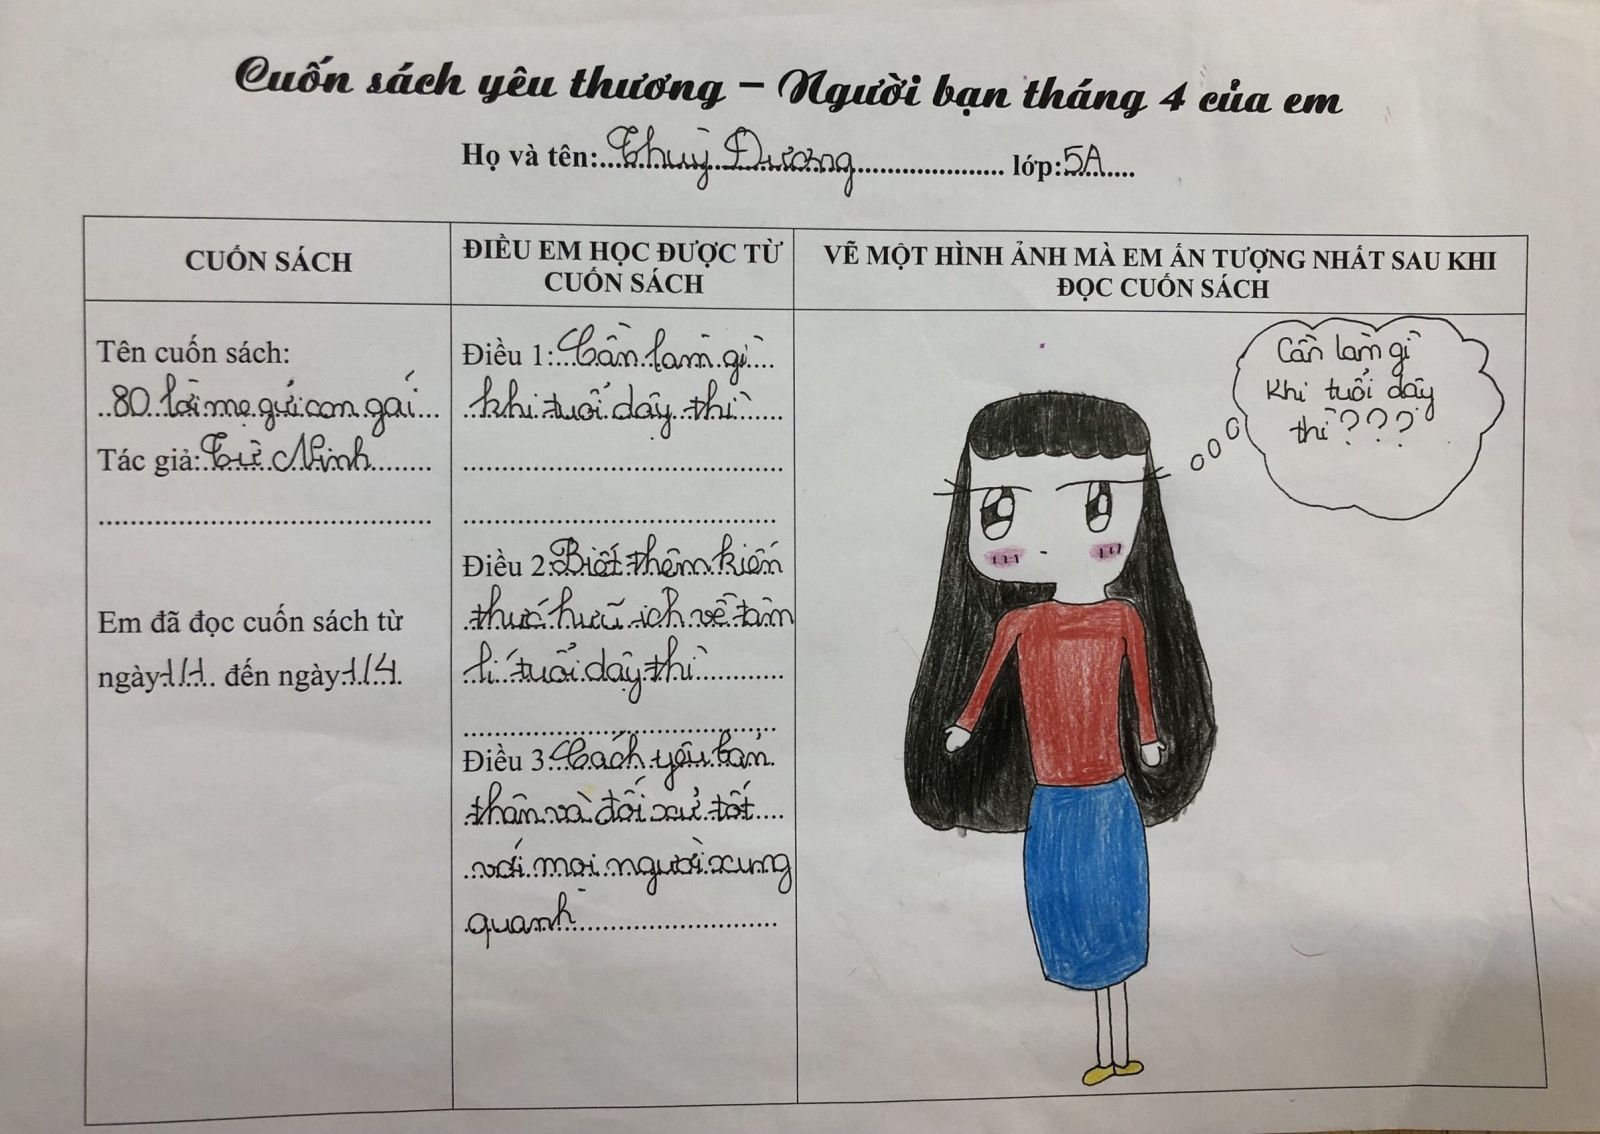 Cuốn sách yêu thương – Người bạn tháng 4 của em
Họ và tên: Thuỳ Dương lớp: 5A
CUỐN SÁCH
Tên cuốn sách:
80 lời mẹ gửi con gái
Tác giả: Từ Ninh
Em đã đọc cuốn sách từ
ngày 1/1 đến ngày 1/4
ĐIỀU EM HỌC ĐƯỢC TỪ
CUỐN SÁCH
Điều 1: Cần làm gì
khi tuổi dậy thì
Điều 2 Biết thêm kiến
thức hữu ích về tâm
lí tuổi dậy thì
Điều 3 Cách yêu bản
thân và đối xử tốt
với mọi người xung
quanh
VẼ MỘT HÌNH ẢNH MÀ EM ẤN TƯỢNG NHẤT SAU KHI
ĐỌC CUỐN SÁCH
Cần làm gì
khi tuổi dậy
thì???